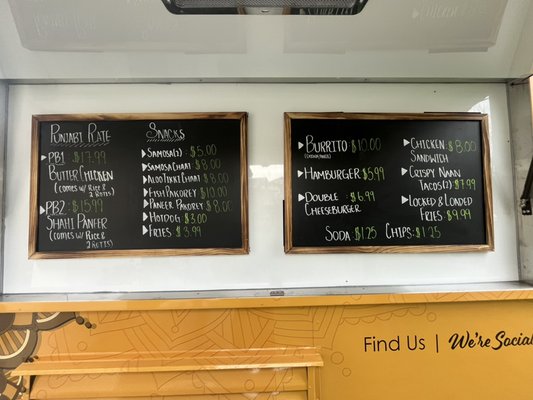 PUNJABI PLATE
▶PB1 $17.99
BUTTER CHICKEN
(COMES W/ RICE & 2 ROTIS)
▶PB2 $15.99
SHAHI PANEER
(COMES W/ RICE & 2 ROTIS)
SNACKS
▶SAMOSA(2): $5.00
▶SAMOSA CHAAT: $8.00
▶ALOO TIKKI CHAAT: $8.00
▶FISH PAKOREY: $10.00
▶PANEER PAKOREY: $8.00
▶HOT DOG: $3.00
▶FRIES: $3.99
▶BURRITO $10.00
▶HAMBURGER $5.99
▶DOUBLE :$6.99
CHEESEBURGER
▶CHICKEN $8.00
SANDWICH
▶CRISPY NAAN
TACOS(2) $7.99
▶LOCKED & LOADED
FRIES $9.99
SODA $1.25 CHIPS: $1.25
Find Us | We're Social